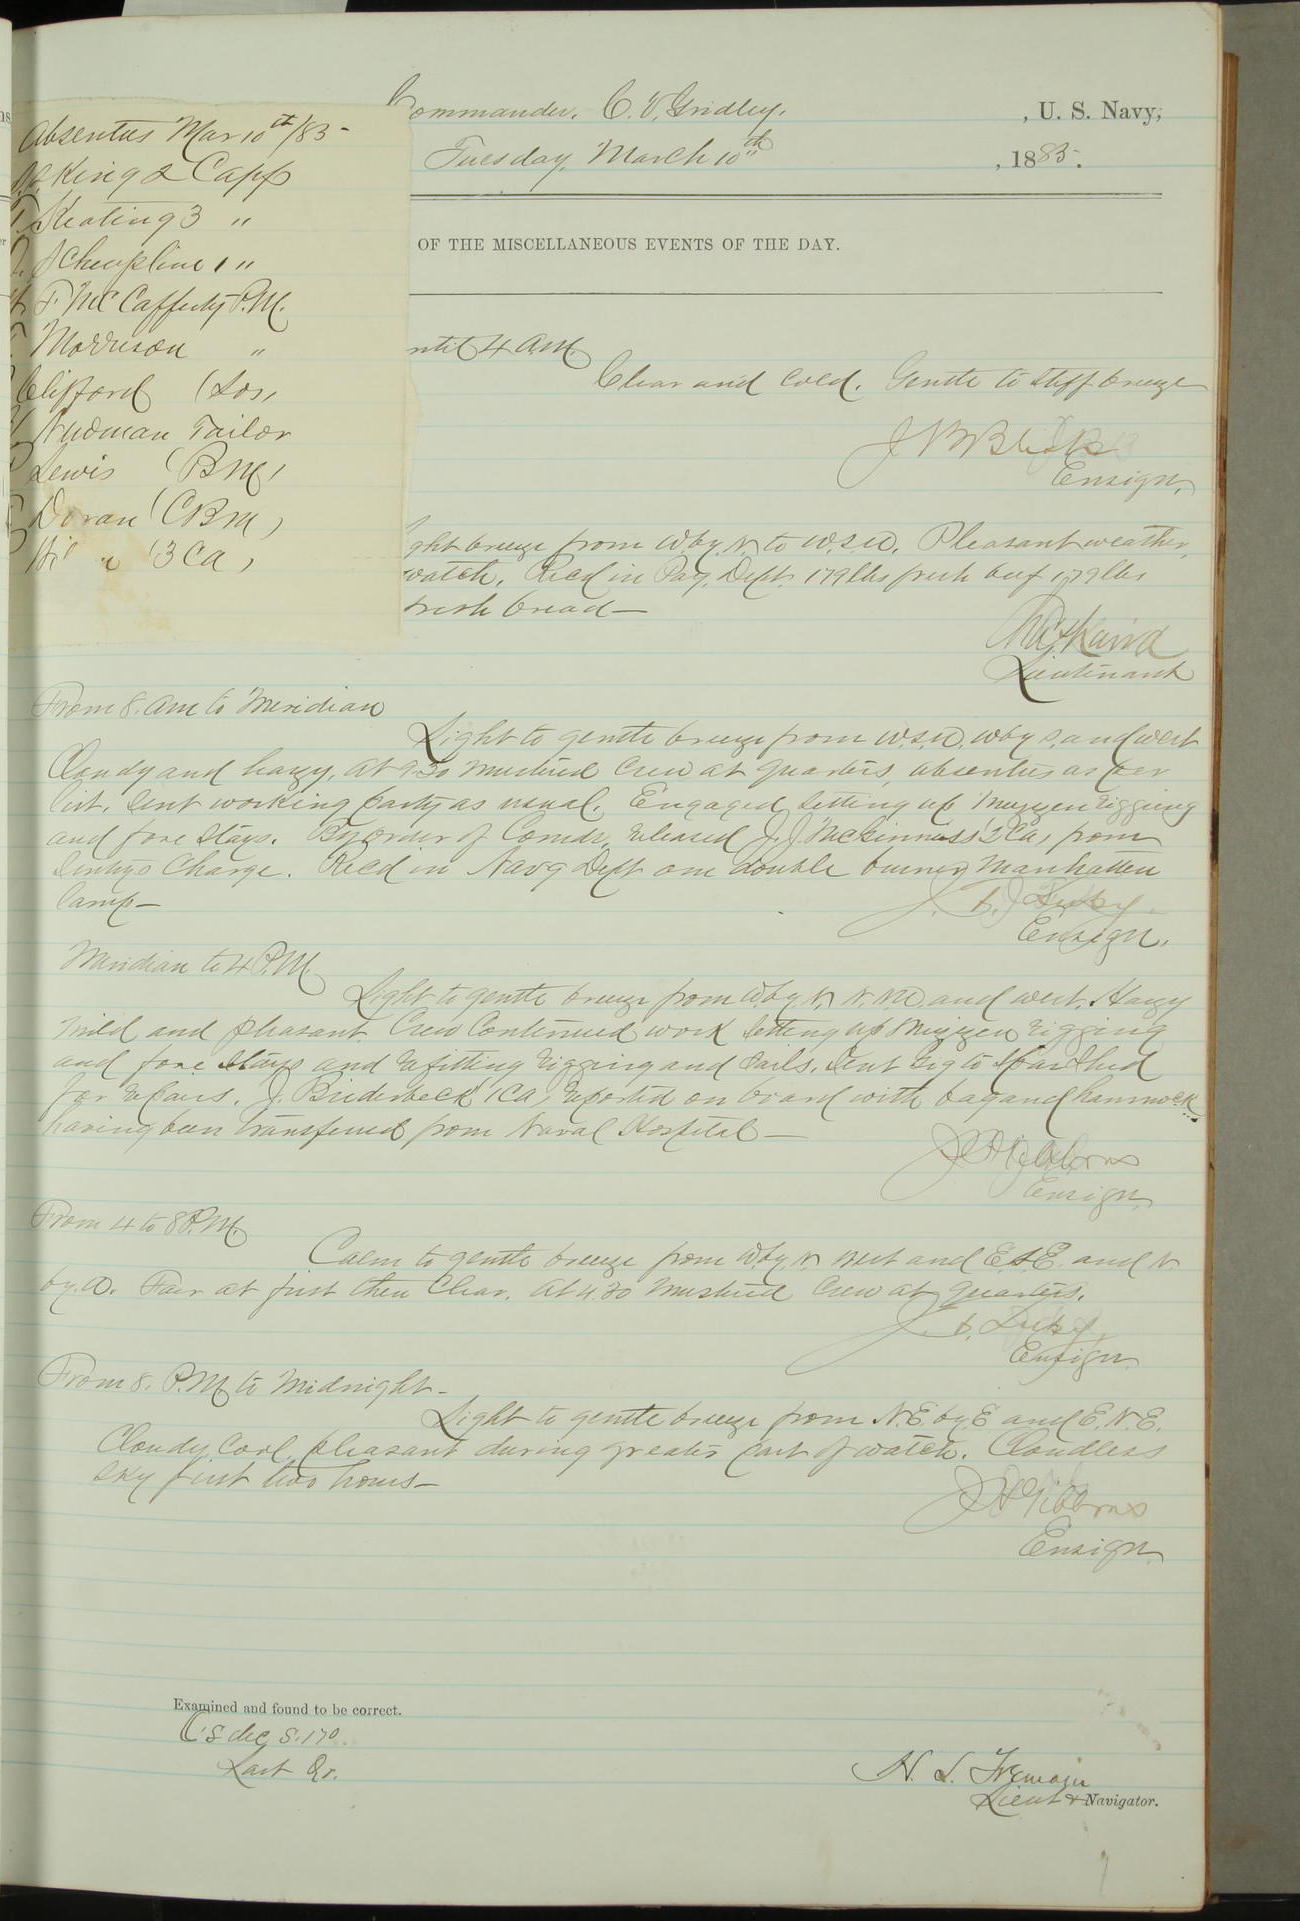 Commander, C. V. Gridley, , U. S. Navy,
Tuesday, March 10th , 1885.
OF THE MISCELLANEOUS EVENTS OF THE DAY.
Absentees Mar 10th/85
King 2 Capp
Keating 3 "
Scheupline 1 "
F McCafferty P.M.
Morrison "
Clifford (Los,
Nudman Tailor
Lewis (B M,
Doran (CBM,
(3 Ca,
ntil 4 a.m.
Clear and cold. Gentle to stiff breeze
Ensign.
ght breeze from W. by N. to W.S.W. Pleasant weather,
watch. Recd in Pay. Dept. 179 lbs fresh beef 179 lbs
fresh bread—
Lieutenant
From 8. am to Meridian
Light to gentle breeze from W.S.W. W by S. and west
Cloudy and hazy. At 9.30 mustered crew at quarters, absentees as per
list. Sent working party as usual. Engaged setting up mizzen rigging
and fore stays. By order of Comdr, released J. J. McKinness (2 Ca) from
Sentrys Charge. Recd in Navg Dept one double burner Manhatten
lamp—
Ensign.
Meridian to 4 P.M.
Light to gentle breeze from W. by N. N.NW and west. Hazy
mild and pleasant. Crew continued work setting up mizzen rigging
and fore stays and refitting rigging and sails. Sent gig to Spar Shed
for repairs. J. Briderbeck (1 Ca) reported on board with bag and hammock
having been transferred from Naval Hospital—
Ensign
From 4 to 8 P.M.
Calm to gentle breeze from W. by N. West and E.S.E. and N
by. W. Fair at first then Clear. At 4.30 mustered crew at quarters.
Ensign
From 8. P.M. to Midnight—
Light to gentle breeze from N.E. by E and E.N.E.
Cloudy, cool, pleasant during greater part of watch. Cloudless
sky first two hours—
J H Gibbons
Ensign
Examined and found to be correct.
C's dec S. 170.
Last Qr.
Lieut & Navigator.